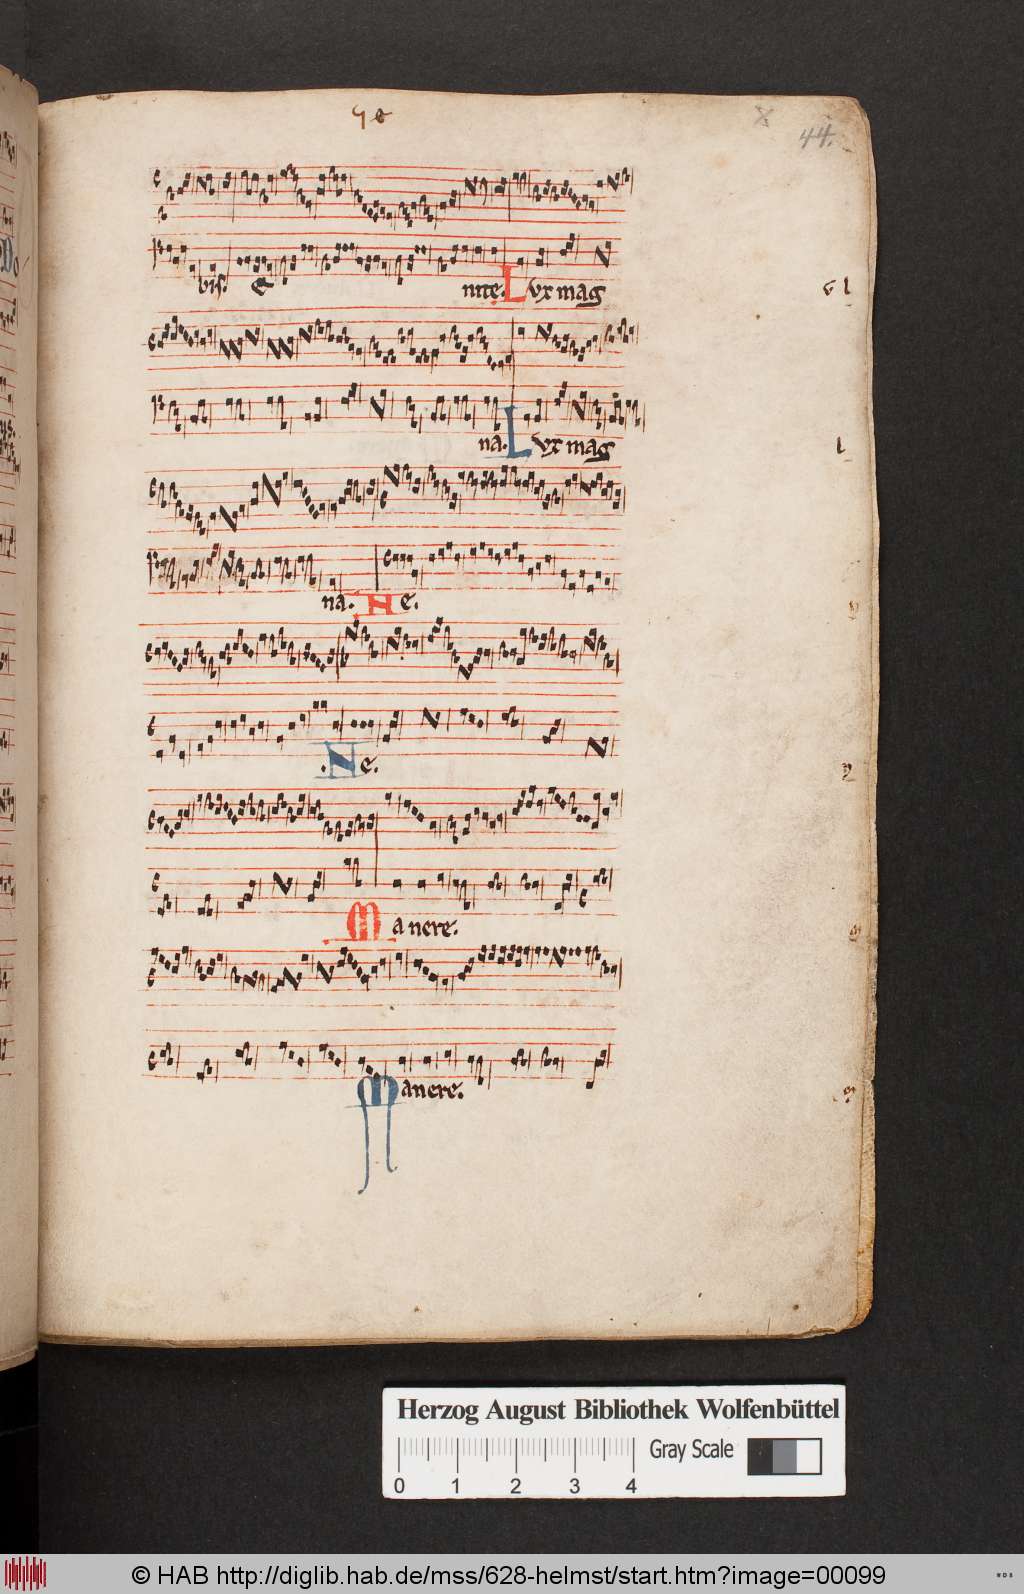 44.
vis. E nite. Lux mag
na. Lux mag
na. Ne.
.Ne.
Manere.
Manere.
Herzog August Bibliothek Wolfenbüttel
Gray Scale
0 1 2 3 4
© HAB http://diglib.hab.de/mss/628-helmst/start.htm?image=00099